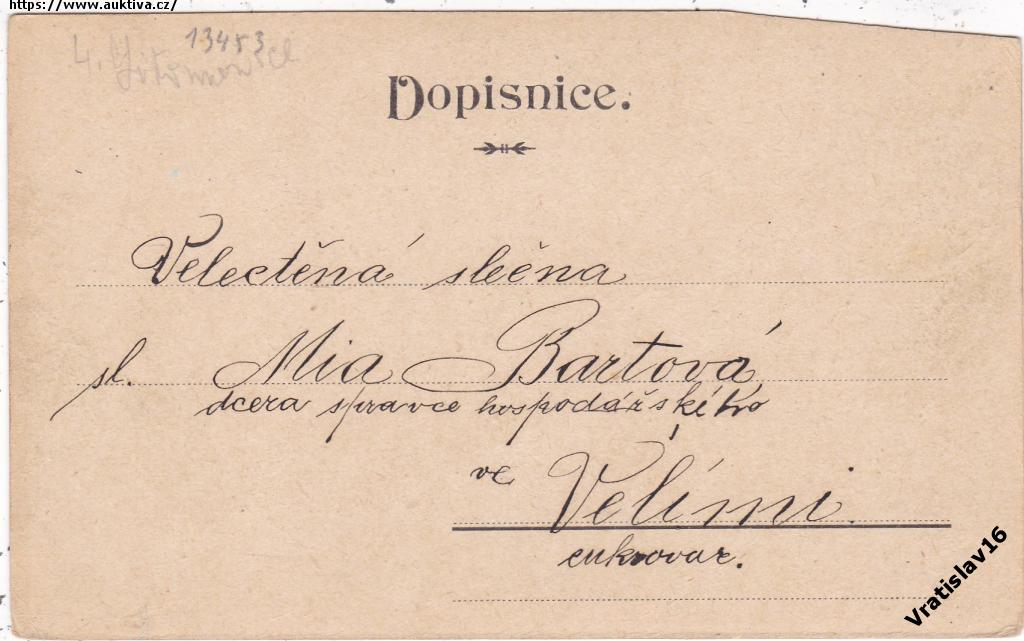 https://www.auktiva.cz/
13453
4.
Dopisnice.
Velectěná slečna
sl. Mia Bartová
dcera správce hospodářského
ve Velími.
cukrovar.
Vratislav16